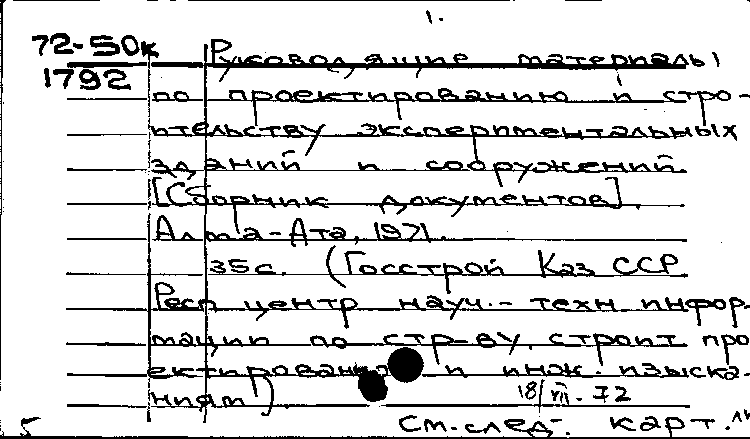 1.
72-50к Руководящие материалы
1792
по проектированию и стро-
ительству экспериментальных
зданий и сооружений.
[Сборник документов].
Алма-Ата, 1971.
35с. (Госстрой Каз ССР
Респ центр науч.-техн инфор-
мации по стр-ву, строит про
ектированию и инж. изыска-
ниям)
18/VII-72
5 См. след. карт.